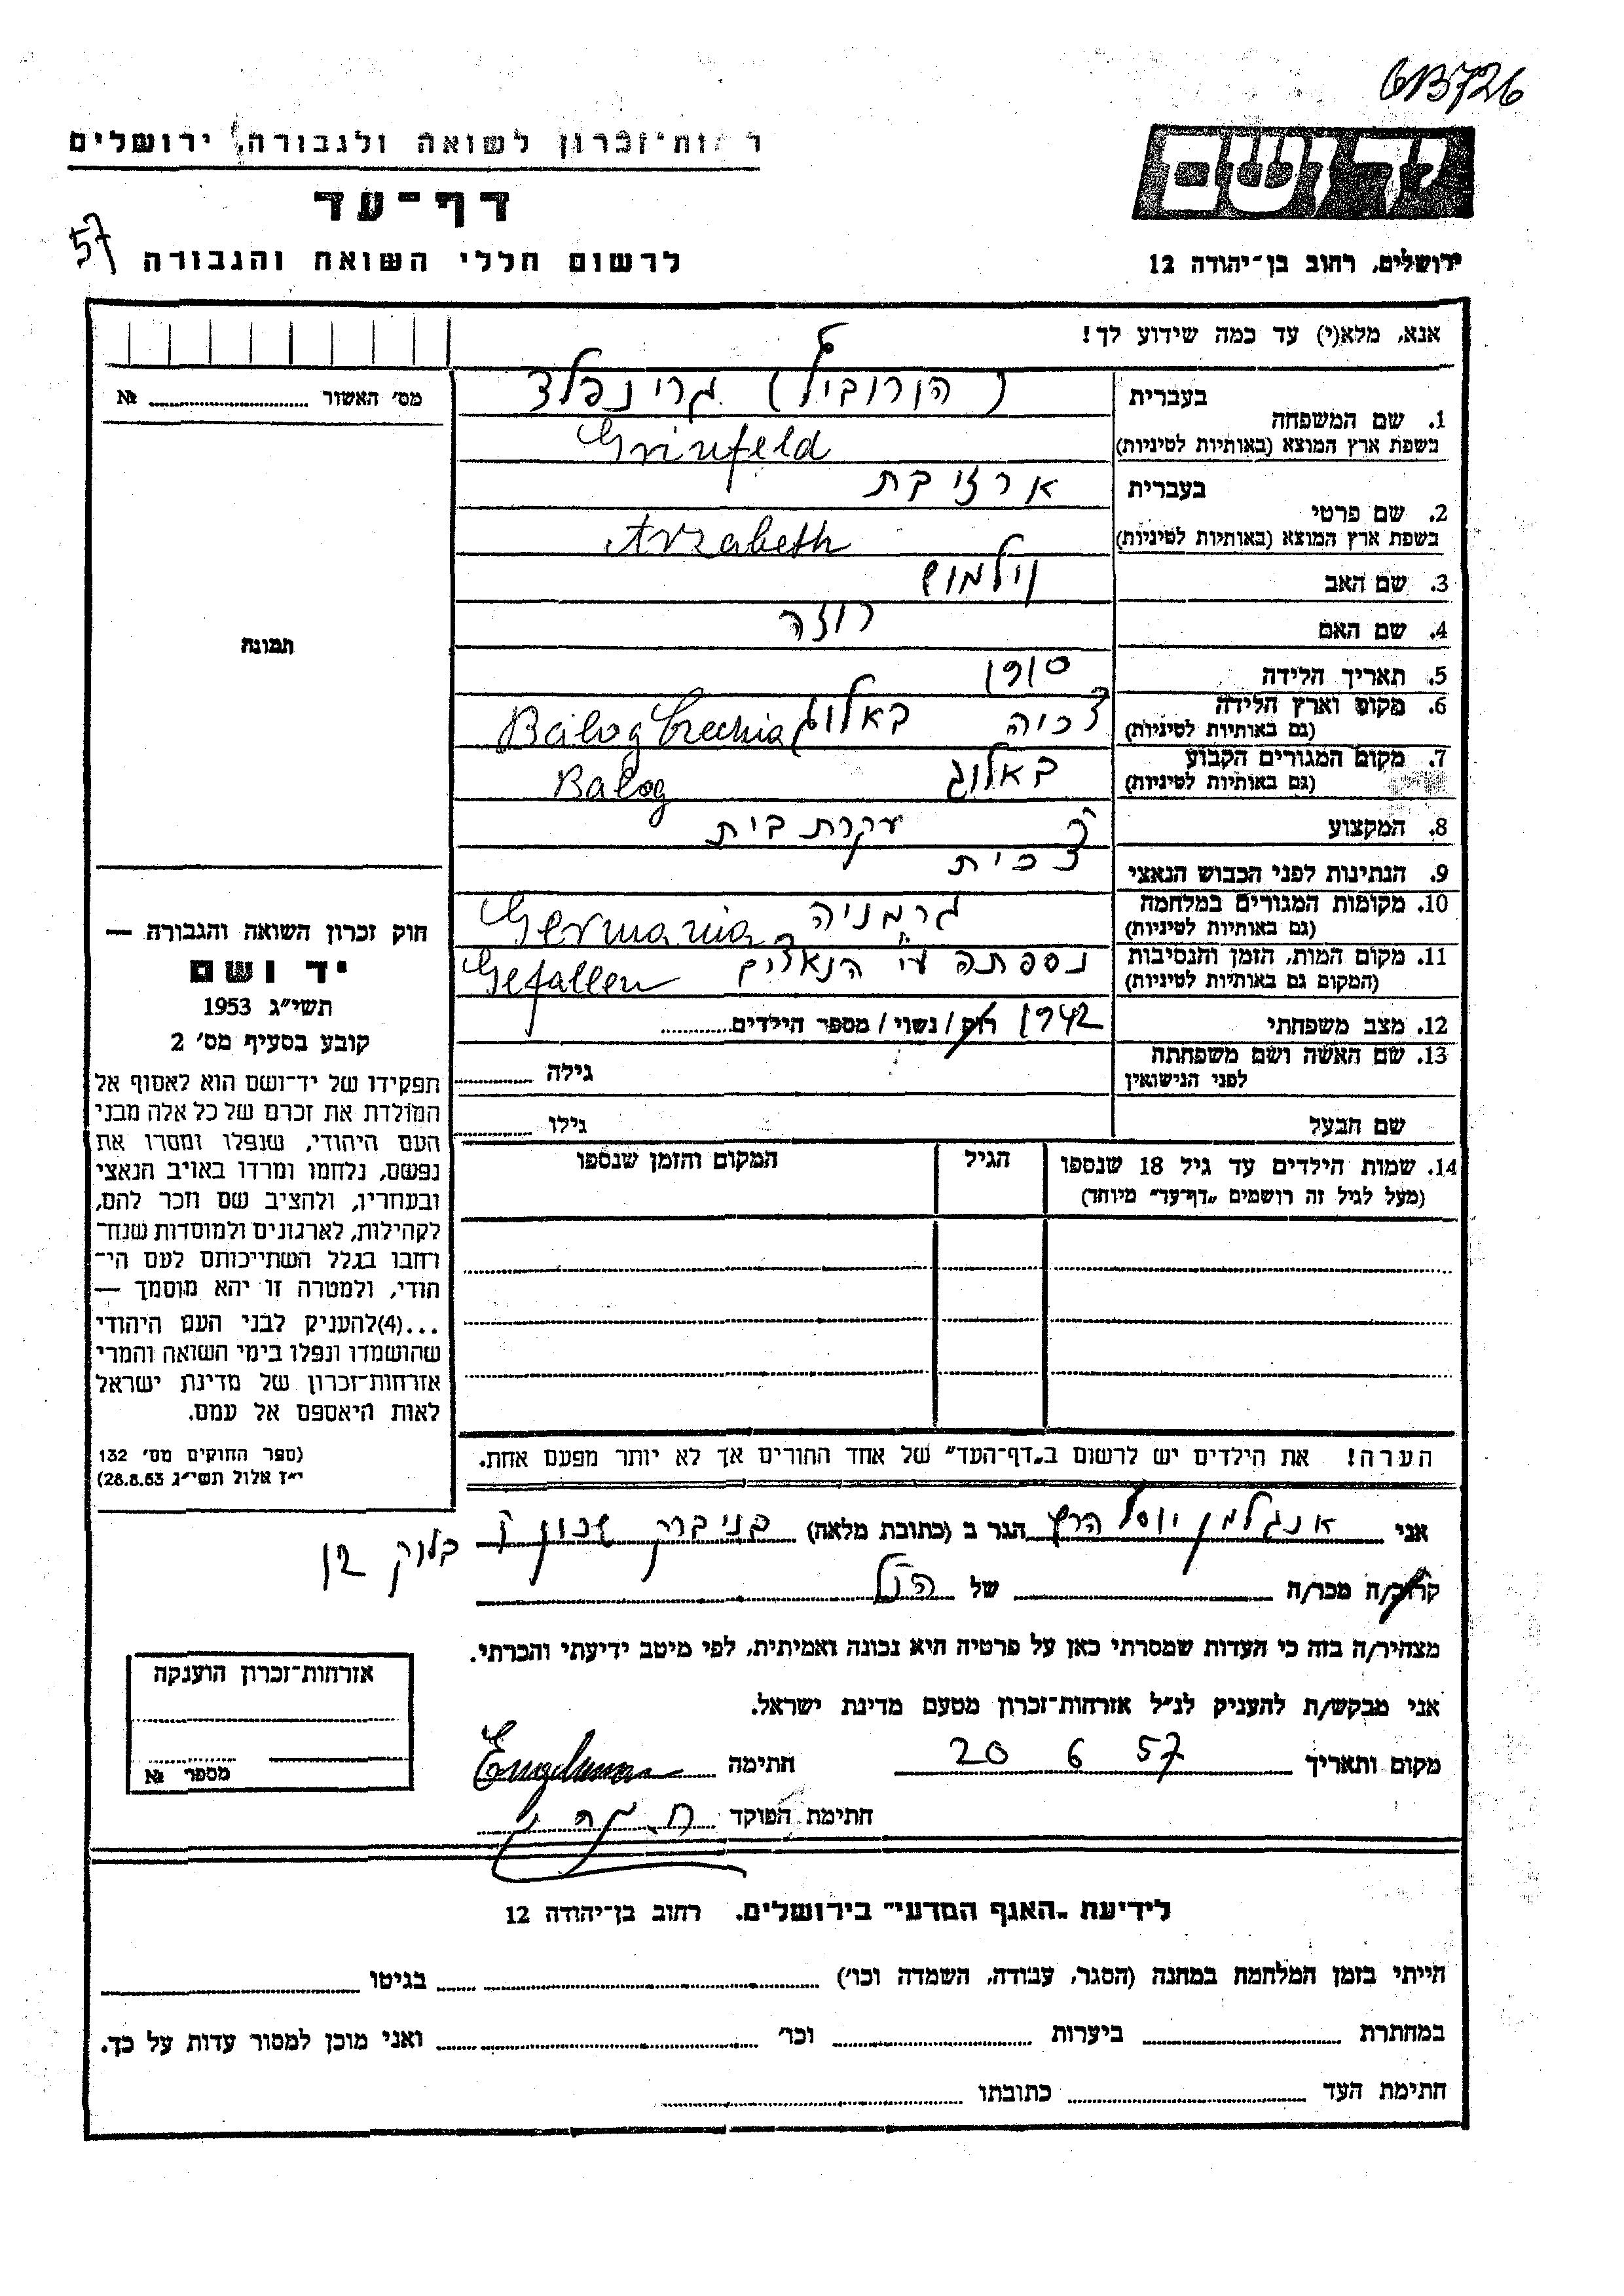 6B726
רשות־זכרון לשואה ולגבורה, ירושלים
ידושם
דף־עד
57
לרשום חללי השואה והגבורה
ירושלים, רחוב בן־יהודה 12
אנא, מלא(י) עד כמה שידוע לך!
מס׳ האשור № 
1. שם המשפחה
בעברית
(הורוביץ) גרינפלד
בשפת ארץ המוצא (באותיות לטיניות) Grinfeld
2. שם פרטי
בעברית ארזיבת
בשפת ארץ המוצא (באותיות לטיניות) Arzabeth
3. שם האב וילמוש
4. שם האם רוזה
5. תאריך הלידה 1910
6. מקום וארץ הלידה
(גם באותיות לטיניות) צ׳כיה באלוג Balog Czechia
7. מקום המגורים הקבוע
(גם באותיות לטיניות) באלוג Balog
8. המקצוע עקרת בית
9. הנתינות לפני הכבוש הנאצי צ׳כית
10. מקומות המגורים במלחמה
(גם באותיות לטיניות) גרמניה Germania
11. מקום המות, הזמן והנסיבות
(המקום גם באותיות לטיניות) נספתה ע״י הנאצים Gefallen
12. מצב משפחתי 1942 רוק/ נשוי/ מספר הילדים
13. שם האשה ושם משפחתה
לפני הנישואין
גילה
שם הבעל
גילו
14. שמות הילדים עד גיל 18 שנספו
(מעל לגיל זה רושמים „דף־עד״ מיוחד)
הגיל
המקום והזמן שנספו
תמונה
חוק זכרון השואה והגבורה —
יד ושם
תשי״ג 1953
קובע בסעיף מס׳ 2
תפקידו של יד־ושם הוא לאסוף אל
המולדת את זכרם של כל אלה מבני
העם היהודי, שנפלו ומסרו את
נפשם, נלחמו ומרדו באויב הנאצי
ובעוזריו, ולהציב שם וזכר להם,
לקהילות, לארגונים ולמוסדות שנח־
רבו בגלל השתייכותם לעם הי־
הודי, ולמטרה זו יהא מוסמך —
...(4)להעניק לבני העם היהודי
שהושמדו ונפלו בימי השואה והמרי
אזרחות־זכרון של מדינת ישראל
לאות היאספם אל עמם.
(ספר החוקים מס׳ 132
י״ז אלול תשי״ג 28.8.53)
הערה! את הילדים יש לרשום ב„דף־העד״ של אחד ההורים אך לא יותר מפעם אחת.
אני אנגלמן יוסף הרץ הגר ב (כתובת מלאה) בני ברק שכון ק׳
בלוק
קרוב/ה מכר/ה של הנ״ל
מצהיר/ה בזה כי העדות שמסרתי כאן על פרטיה היא נכונה ואמיתית, לפי מיטב ידיעתי והכרתי.
אני מבקש/ת להעניק לנ״ל אזרחות־זכרון מטעם מדינת ישראל.
מקום ותאריך 20 6 57 חתימה Engelman
חתימת הפוקד
אזרחות־זכרון הוענקה
מספר №
לידיעת „האגף המדעי״ בירושלים. רחוב בן־יהודה 12
הייתי בזמן המלחמה במחנה (הסגר, עבודה, השמדה וכו׳) בגיטו
במחתרת ביערות וכו׳ ואני מוכן למסור עדות על כך.
חתימת העד כתובתו